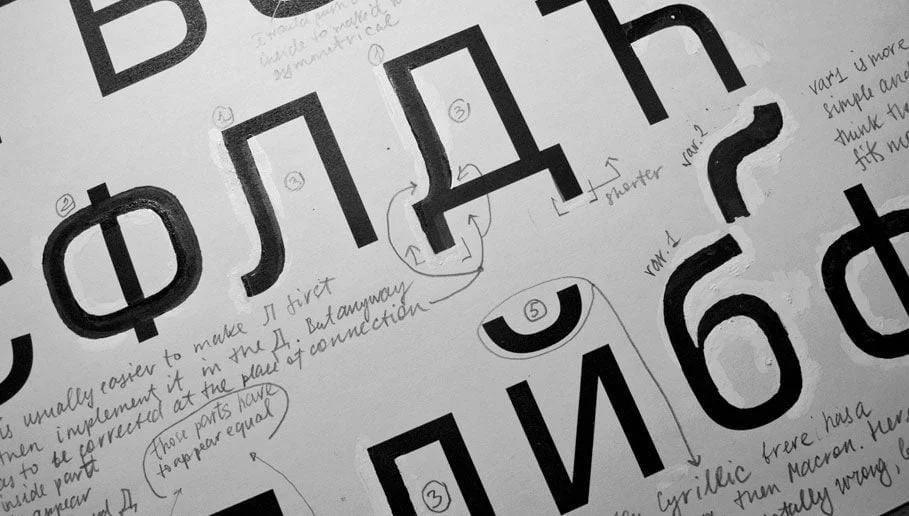 I would push
inside to make it
asymmetrical
Ф Л Д
2
3
1
3
var. 2
shorter
var 1 is more
simple and
think tha
fits mo
var. 1
П Й б Ф
5
3
is usually easier to make Л first
then implement it in the Д. But anyway
as to be corrected at the place of connection
inside part
appear
Those parts have
to appear equal
Cyrillic breve has a
then Macron. Her
totally wrong, b